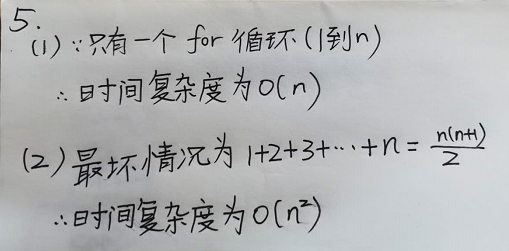 5.
(1) ∵只有一个 for 循环 (1到n)
∴ 时间复杂度为 O(n)
(2) 最坏情况为 1+2+3+⋯+n = n(n+1)/2
∴时间复杂度为 O(n²)